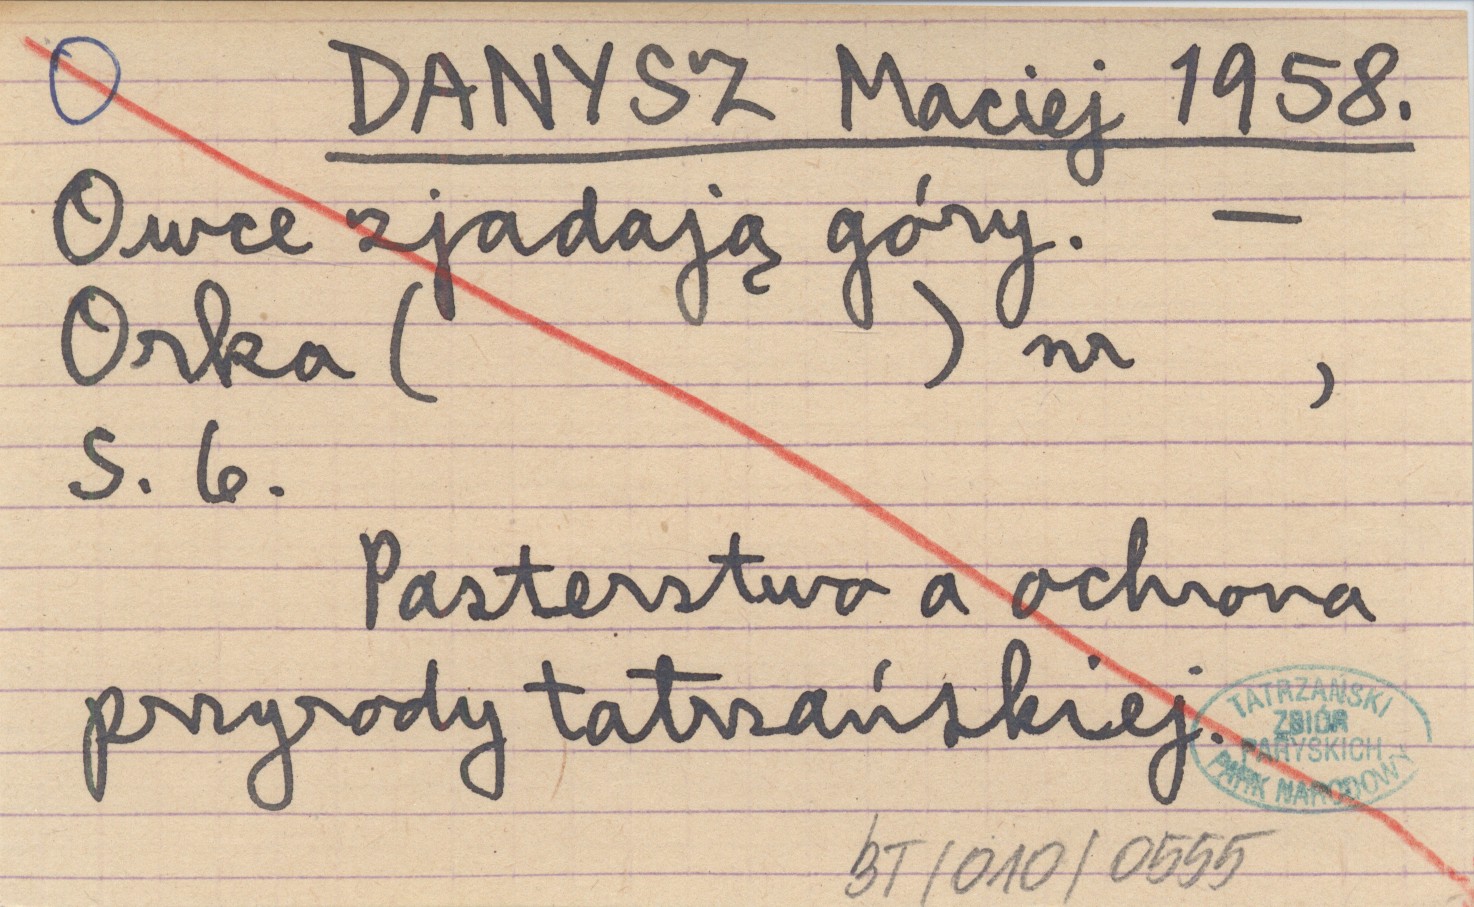 O DANYSZ Maciej 1958.
Owce zjadają góry. —
Orka ( ) nr ,
S. 6.
Pasterstwo a ochrona
przyrody tatrzańskiej.
TATRZAŃSKI
ZBIÓR
PARYSKICH
PARK NARODOWY
BT/010/0555